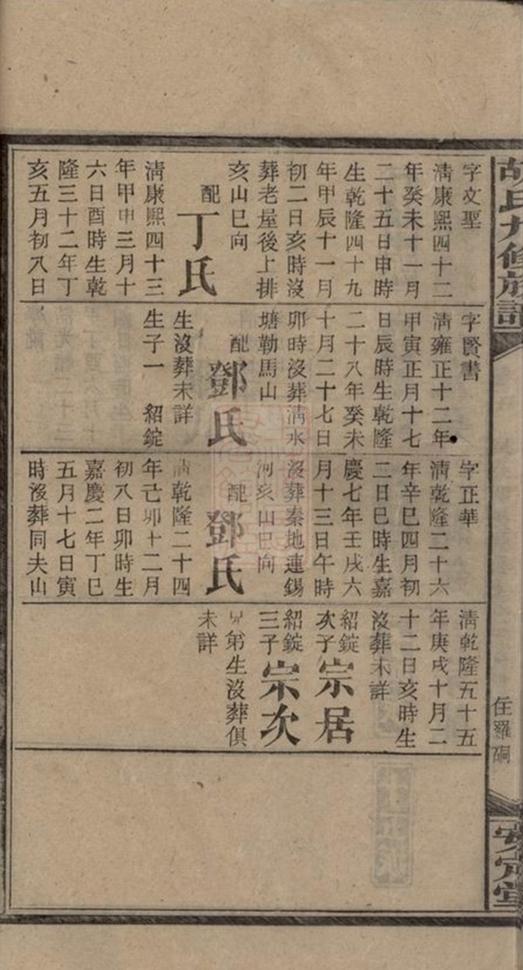 胡氏九修族譜
任羅硐
安定堂
字文聖
清康熙四十二
年癸未十一月
二十五日申時
生乾隆四十九
年甲辰十一月
初二日亥時沒
葬老屋後上排
亥山巳向
配丁氏
清康熙四十三
年甲申三月十
六日酉時生乾
隆三十二年丁
亥五月初八日
字賢書
清雍正十二年
甲寅正月十七
日辰時生乾隆
二十八年癸未
十月二十七日
卯時沒葬清水
塘勒馬山
配鄧氏
生沒葬未詳
生子一 紹錠
字正華
清乾隆二十六
年辛巳四月初
二日巳時生嘉
慶七年壬戌六
月十三日午時
沒葬秦地連錫
河亥山巳向
配鄧氏
清乾隆二十四
年己卯十二月
初八日卯時生
嘉慶二年丁巳
五月十七日寅
時沒葬同夫山
清乾隆五十五
年庚戌十月二
十二日亥時生
沒葬未詳
紹錠次子宗居
紹錠三子宗次
兄弟生沒葬俱
未詳